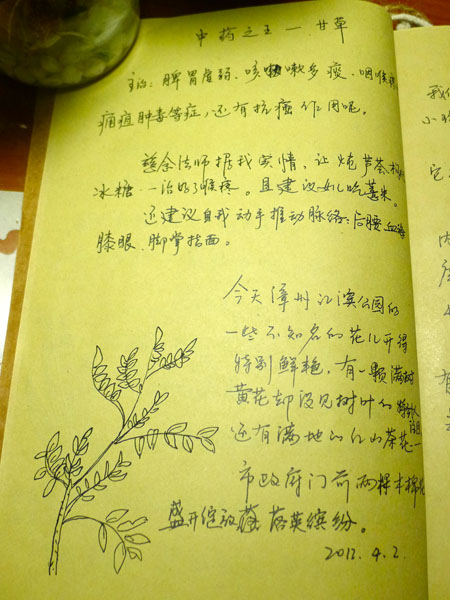 中药之王一甘草
主治：脾胃虚弱、咳嗽多痰、咽喉
痈疽肿毒等症，还有抗癌作用呢。
慈余法师据我实情，让炖芦荟
冰糖一治好了喉疼。且建议如儿吃薏米。
还建议自我动手推动脉络：后腰血海
膝眼、脚掌指面。
今天漳州江滨公园的
一些不知名的花儿开得
特别鲜艳，有一颗满树
黄花却没见树叶的特别
还有满地的红山茶花一
市政府门前两棵木棉花
盛开绽放 落英缤纷。
2012.4.2.
我们
小
它
内
有